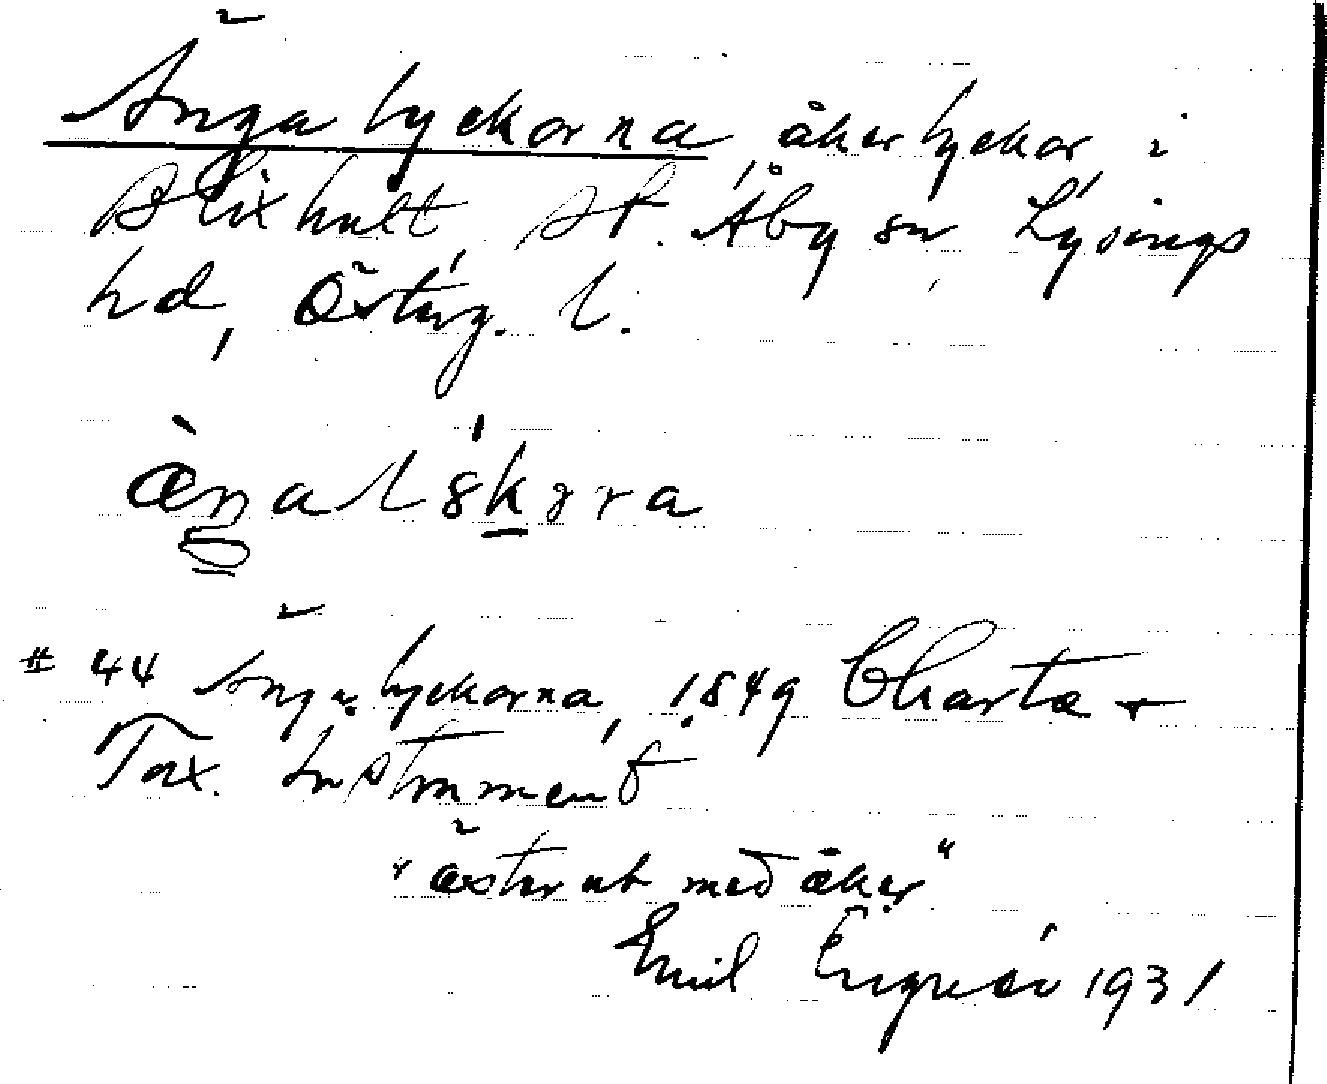 Ängalyckorna, åkerlyckor i
Blixhult, St. Åby sn, Lysings
hd, Österg. l.
# 44 Ängalyckorna, 1849 Charta +
Tax. Instrument
"öster ut med åker"
Emil Engréen 1931